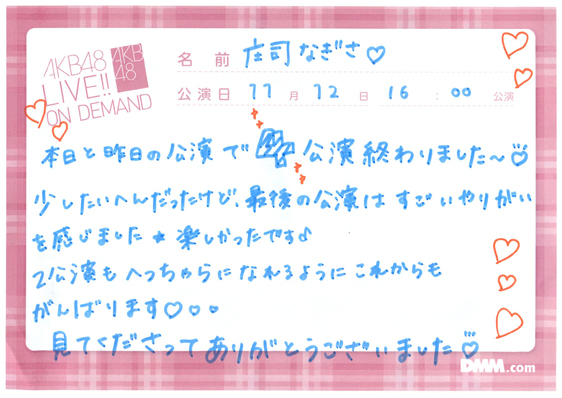 AKB48
LIVE!!
ON DEMAND
AKB
48
名前 庄司なぎさ♡
公演日 11月12日 16:00 公演
本日と昨日の公演で 公演終わりました〜
少したいへんだったけど、最後の公演はすごいやりがい
を感じました★楽しかったです♪
2公演もへっちゃらになれるようにこれからも
がんばります♡○○
見てくださってありがとうございました♡
DMM.com